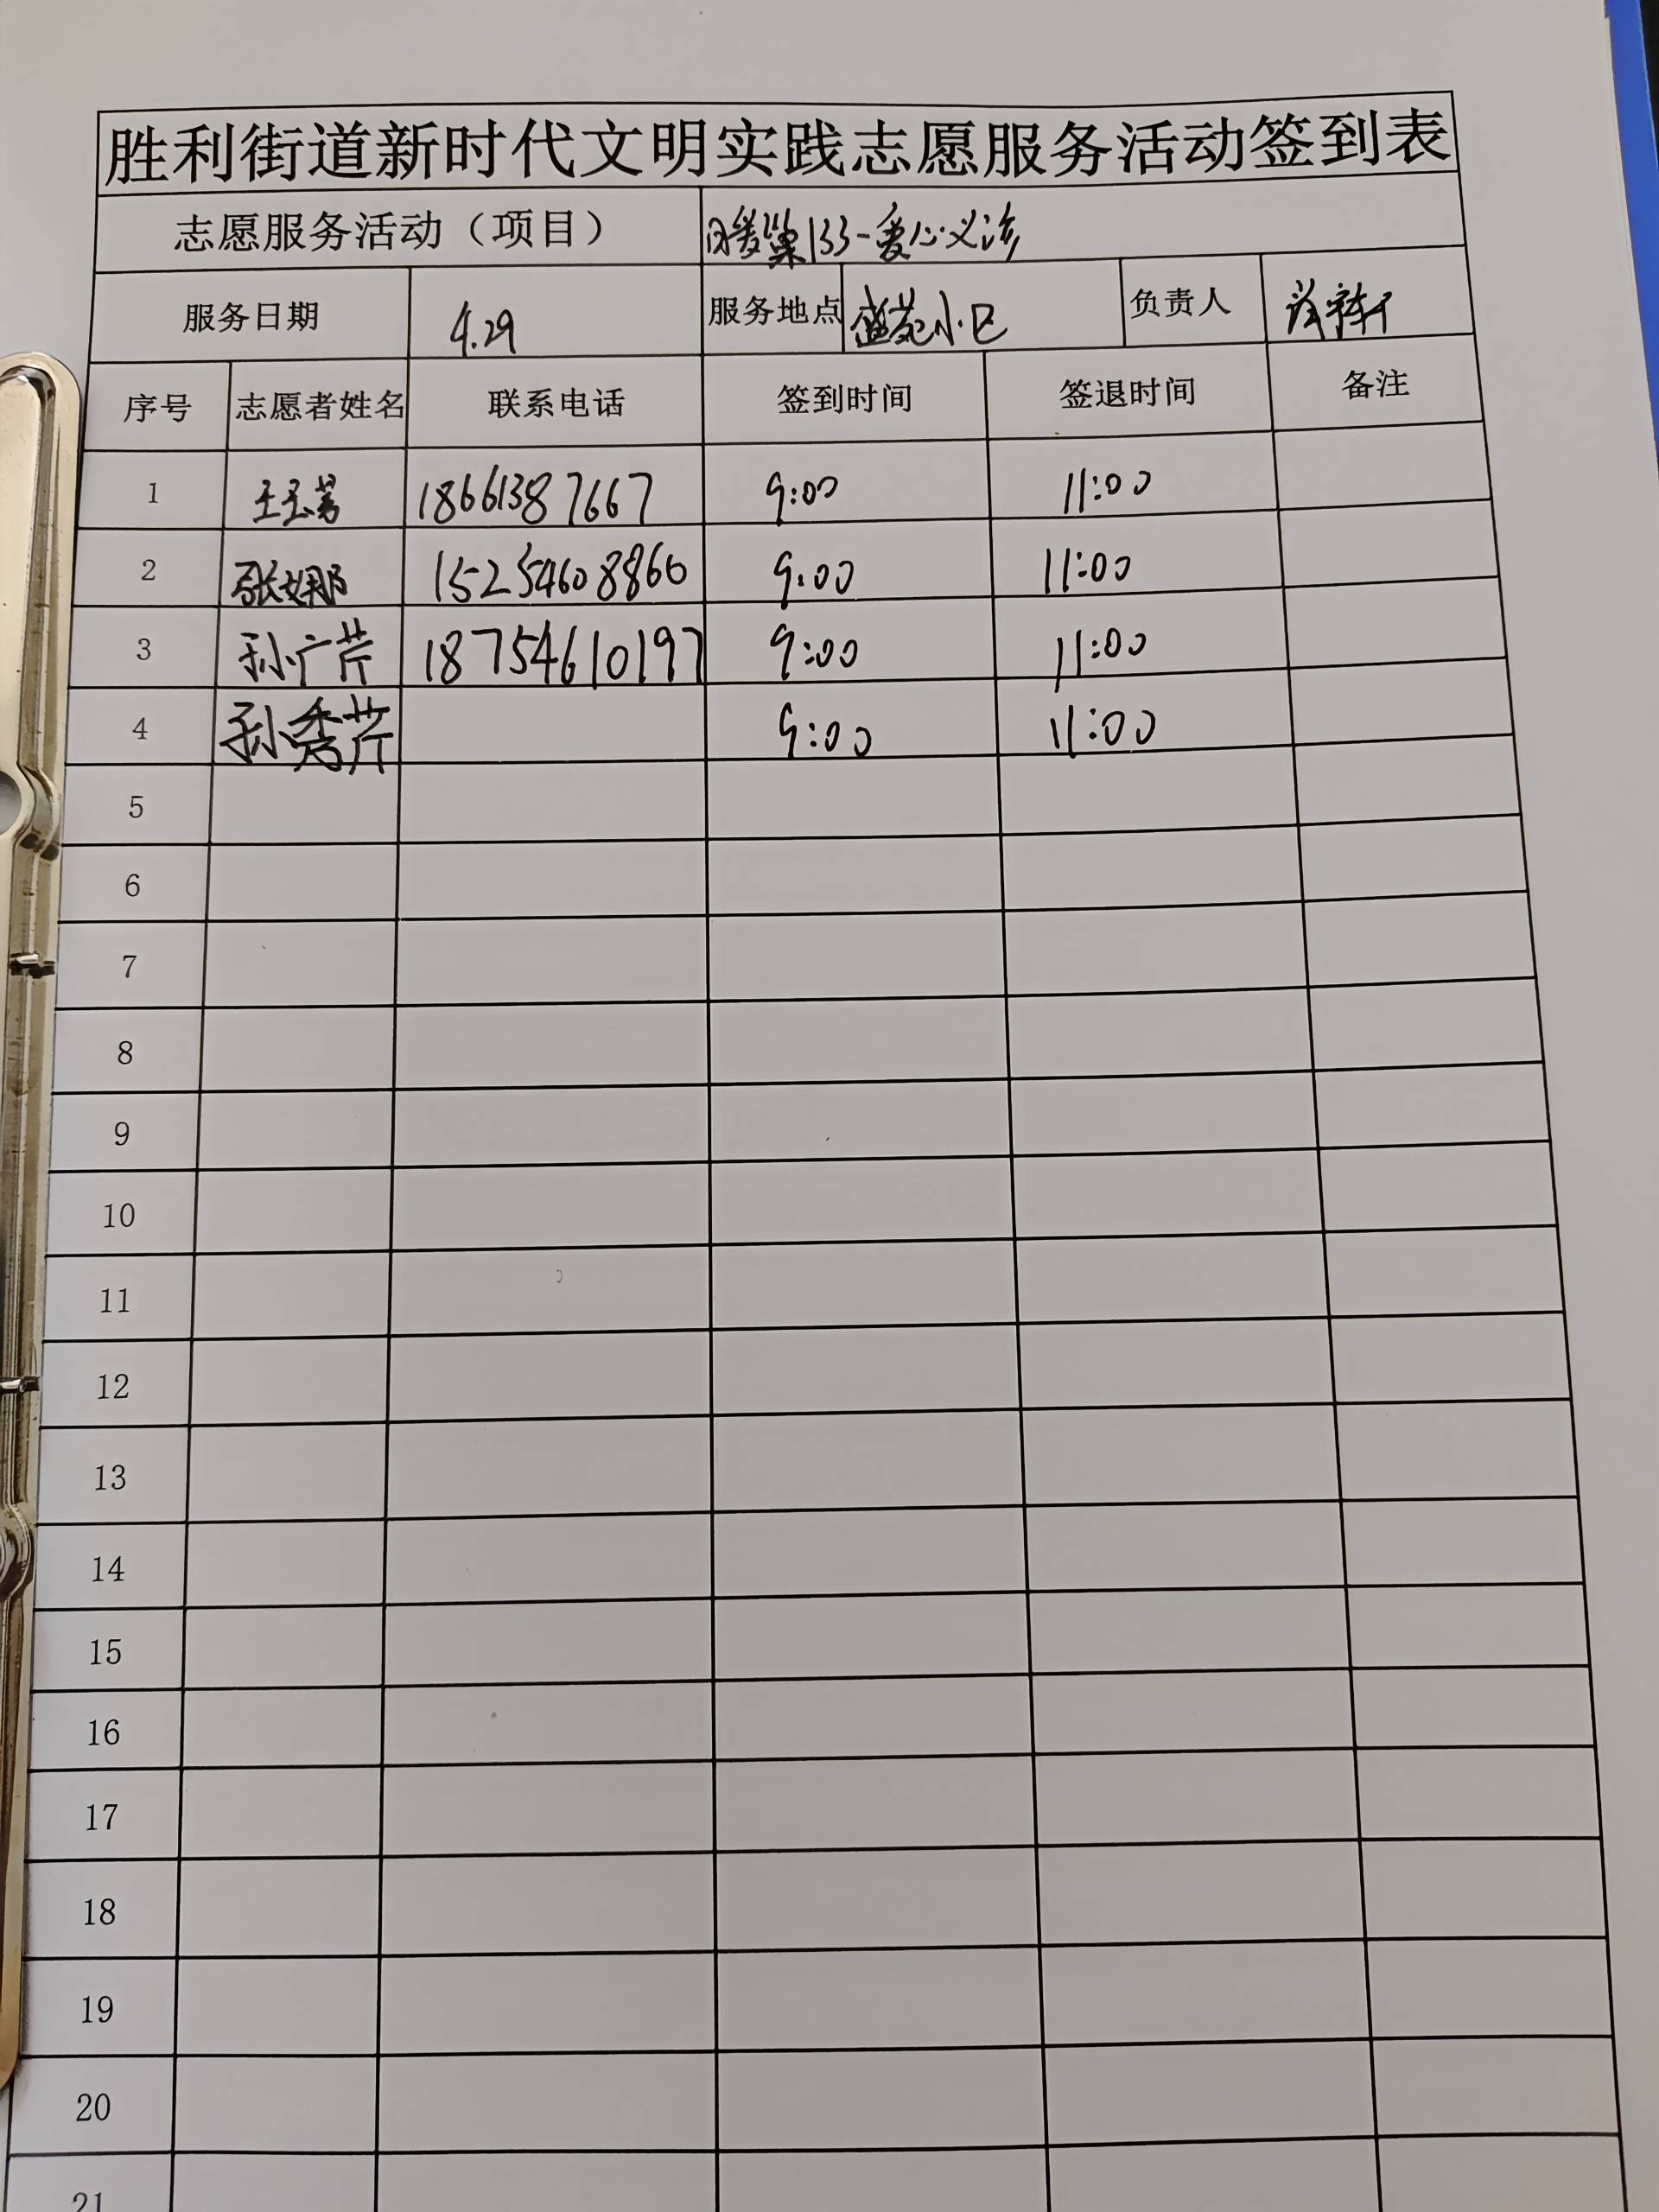 胜利街道新时代文明实践志愿服务活动签到表
志愿服务活动（项目） 暖巢133-爱心义诊
服务日期 4.29 服务地点 盛苑小区 负责人
序号 志愿者姓名 联系电话 签到时间 签退时间 备注
1 王玉芳 18661387667 9:00 11:00
2 张娜 15254608860 9:00 11:00
3 孙广芹 18754610197 9:00 11:00
4 孙秀芹 9:00 11:00
5
6
7
8
9
10
11
12
13
14
15
16
17
18
19
20
21